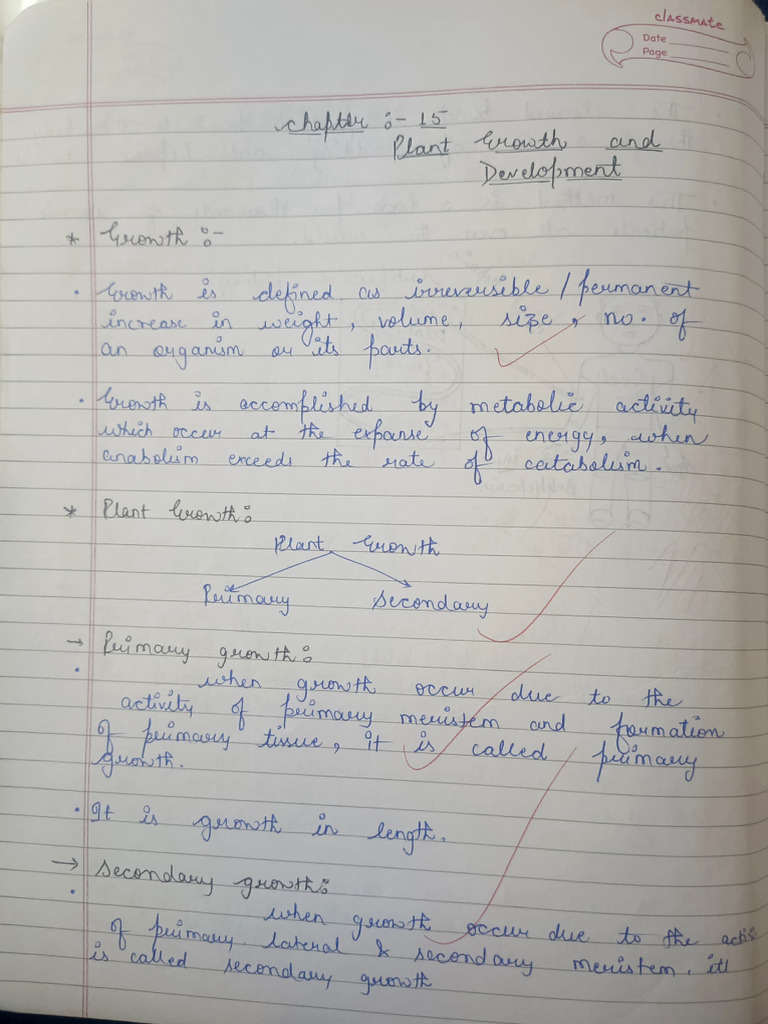 classmate
Date
Page
Chapter :- 15
Plant Growth and
Development
* Growth :-
• Growth is defined as irreversible / permanent
increase in weight, volume, size, no. of
an organism or its parts.
• Growth is accomplished by metabolic activity
which occur at the expanse of energy, when
anabolism exceeds the rate of catabolism.
* Plant Growth:
Plant Growth
Primary Secondary
→ Primary growth:
• when growth occur due to the
activity of primary meristem and formation
of primary tissue, it is called primary
growth.
• It is growth in length.
→ Secondary growth:
• when growth occur due to the
of primary lateral & secondary meristem. it
is called secondary growth